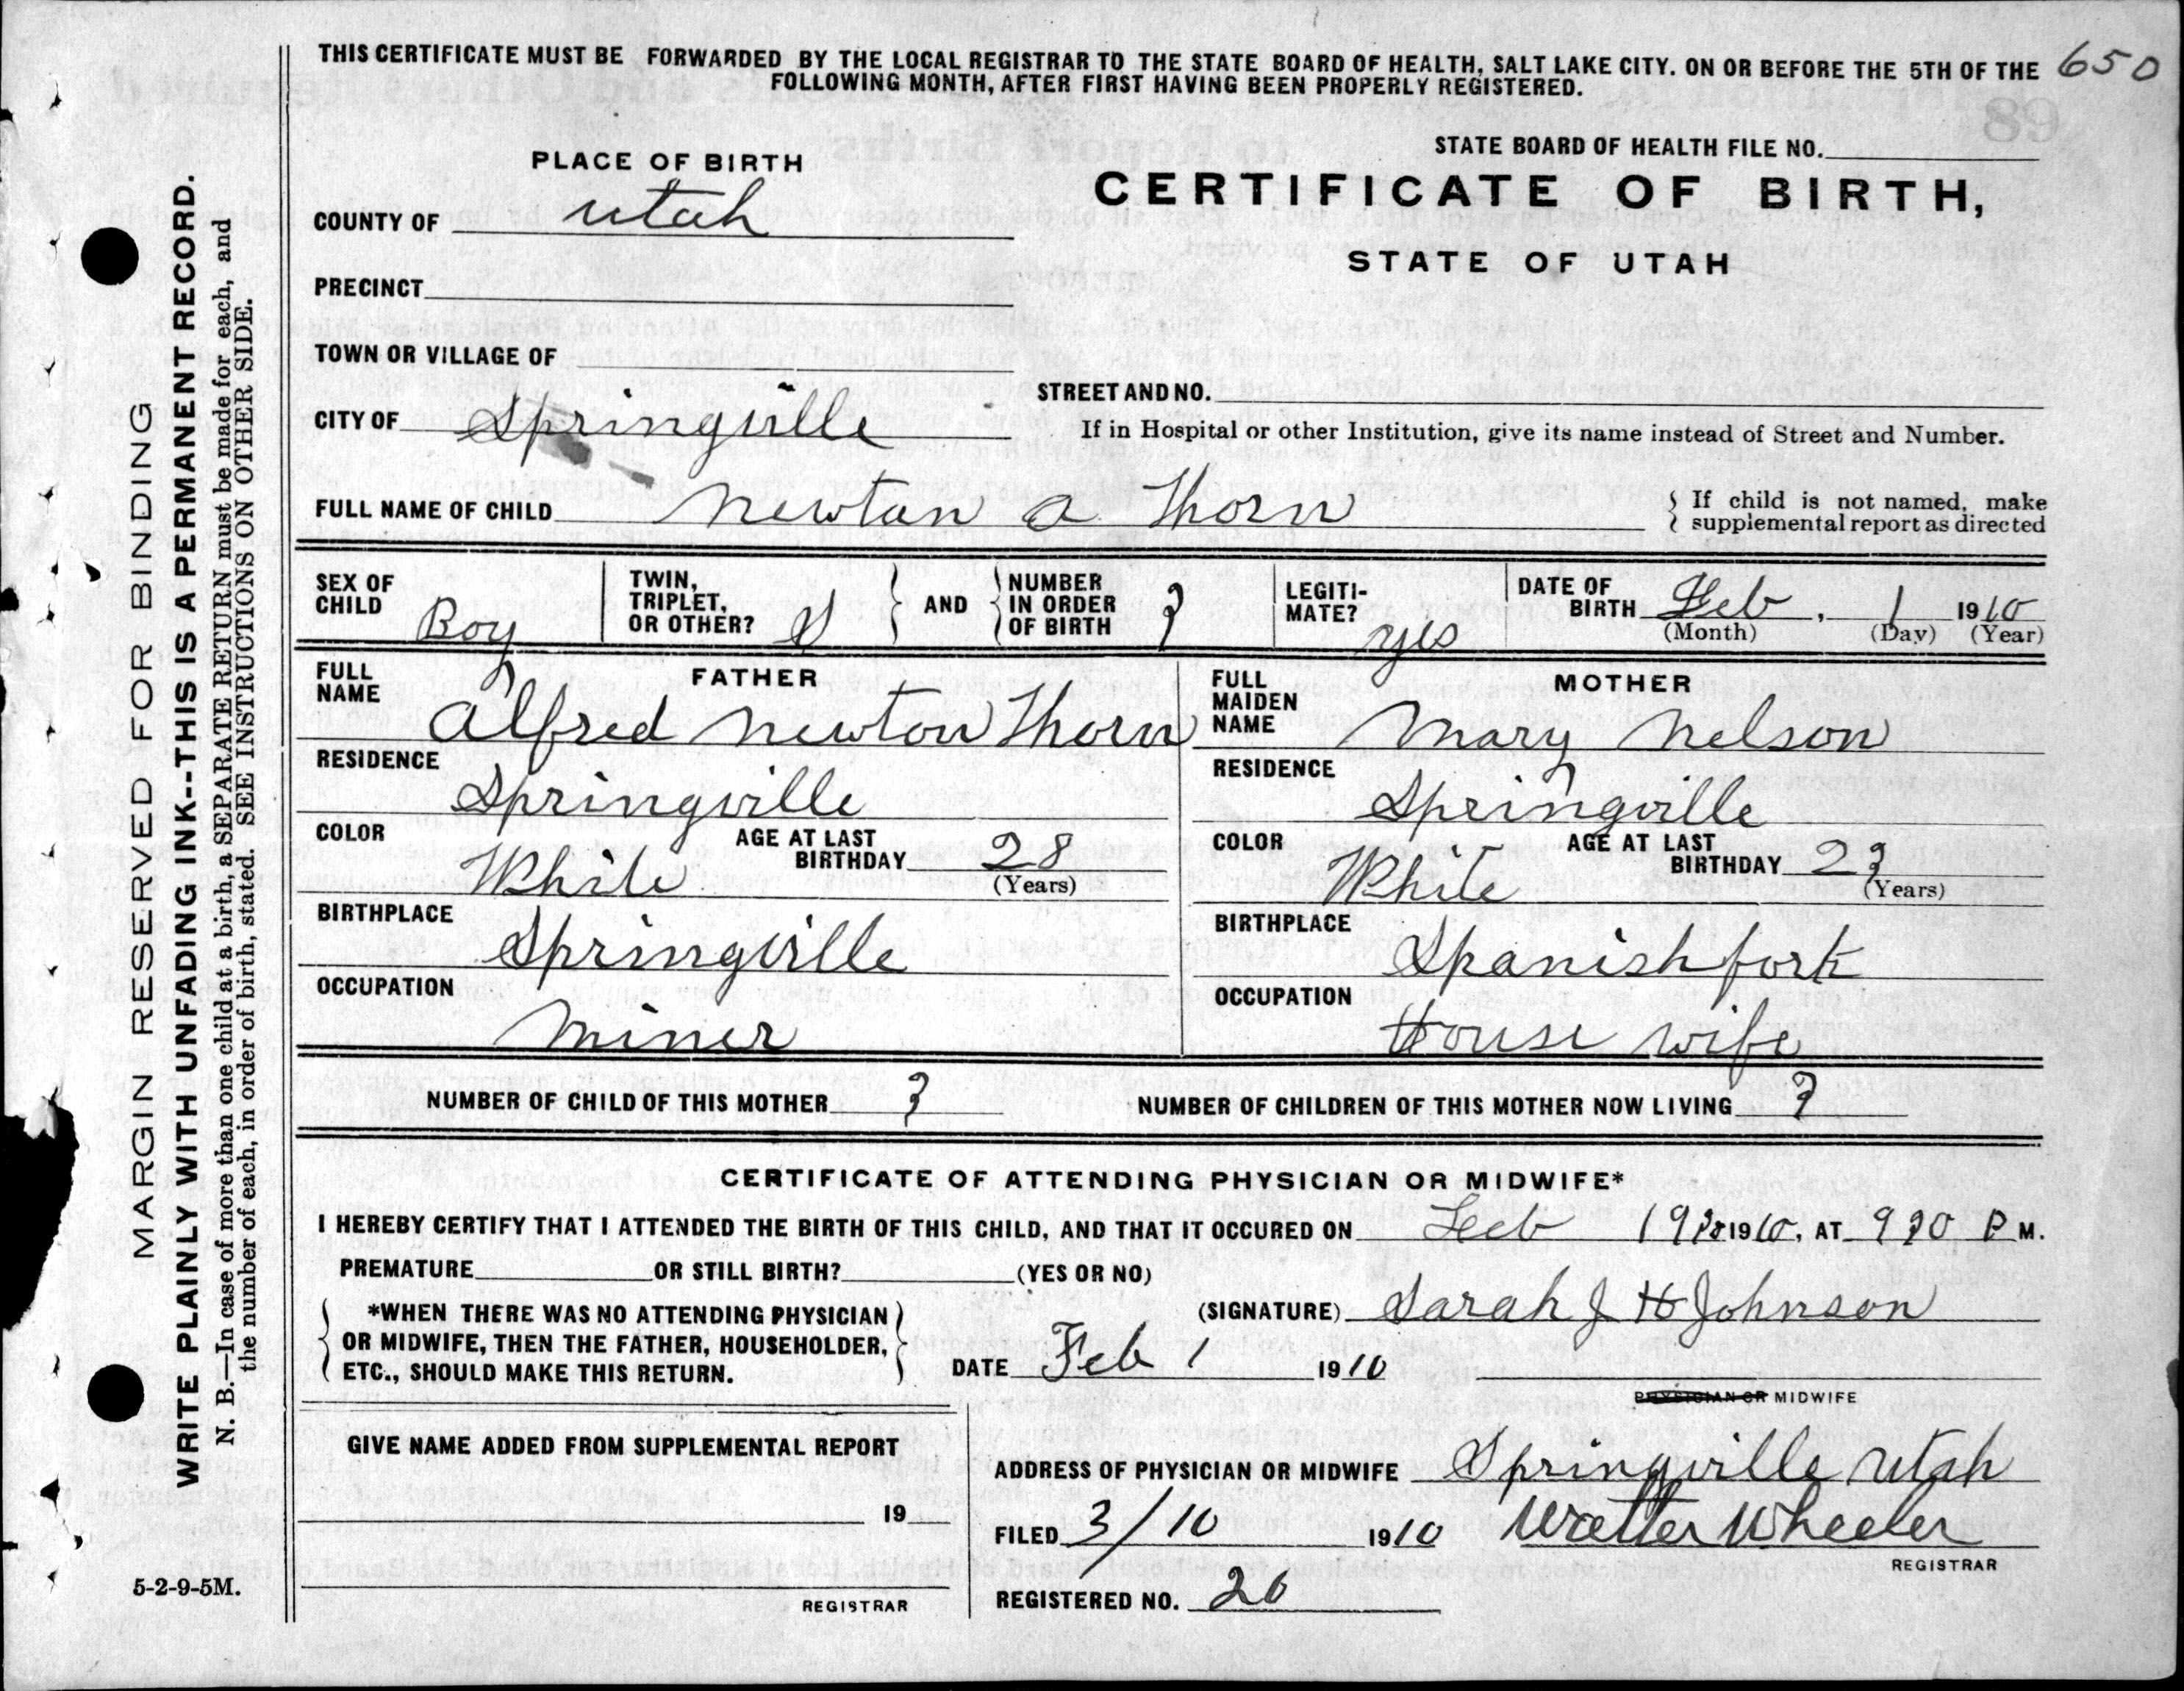 THIS CERTIFICATE MUST BE FORWARDED BY THE LOCAL REGISTRAR TO THE STATE BOARD OF HEALTH, SALT LAKE CITY. ON OR BEFORE THE 5TH OF THE 650
FOLLOWING MONTH, AFTER FIRST HAVING BEEN PROPERLY REGISTERED.
89
STATE BOARD OF HEALTH FILE NO.
PLACE OF BIRTH
CERTIFICATE OF BIRTH,
STATE OF UTAH
COUNTY OF Utah
PRECINCT
TOWN OR VILLAGE OF
STREET AND NO.
CITY OF Springville
If in Hospital or other Institution, give its name instead of Street and Number.
FULL NAME OF CHILD Newton a Thorn
If child is not named, make
supplemental report as directed
SEX OF CHILD Boy
TWIN, TRIPLET, OR OTHER?
AND
NUMBER IN ORDER OF BIRTH 3
LEGITI-MATE? yes
DATE OF BIRTH Feb, 1 1910
(Month) (Day) (Year)
FATHER
FULL NAME Alfred Newton Thorn
RESIDENCE Springville
COLOR White
AGE AT LAST BIRTHDAY 28
(Years)
BIRTHPLACE Springville
OCCUPATION Miner
MOTHER
FULL MAIDEN NAME Mary Nelson
RESIDENCE Springville
COLOR White
AGE AT LAST BIRTHDAY 23
(Years)
BIRTHPLACE Spanish fork
OCCUPATION House wife
NUMBER OF CHILD OF THIS MOTHER 3
NUMBER OF CHILDREN OF THIS MOTHER NOW LIVING 3
CERTIFICATE OF ATTENDING PHYSICIAN OR MIDWIFE*
I HEREBY CERTIFY THAT I ATTENDED THE BIRTH OF THIS CHILD, AND THAT IT OCCURED ON Feb 1910, AT 930 P M.
PREMATURE OR STILL BIRTH? (YES OR NO)
*WHEN THERE WAS NO ATTENDING PHYSICIAN
OR MIDWIFE, THEN THE FATHER, HOUSEHOLDER,
ETC., SHOULD MAKE THIS RETURN.
(SIGNATURE) Sarah J H Johnson
DATE Feb 1 1910
PHYSICIAN OR MIDWIFE
GIVE NAME ADDED FROM SUPPLEMENTAL REPORT
19
REGISTRAR
ADDRESS OF PHYSICIAN OR MIDWIFE Springville Utah
FILED 3/10 1910 Walter Wheeler
REGISTRAR
REGISTERED NO. 26
5-2-9-5M.
MARGIN RESERVED FOR BINDING
WRITE PLAINLY WITH UNFADING INK--THIS IS A PERMANENT RECORD.
N. B.—In case of more than one child at a birth, a SEPARATE RETURN must be made for each, and
the number of each, in order of birth, stated. SEE INSTRUCTIONS ON OTHER SIDE.